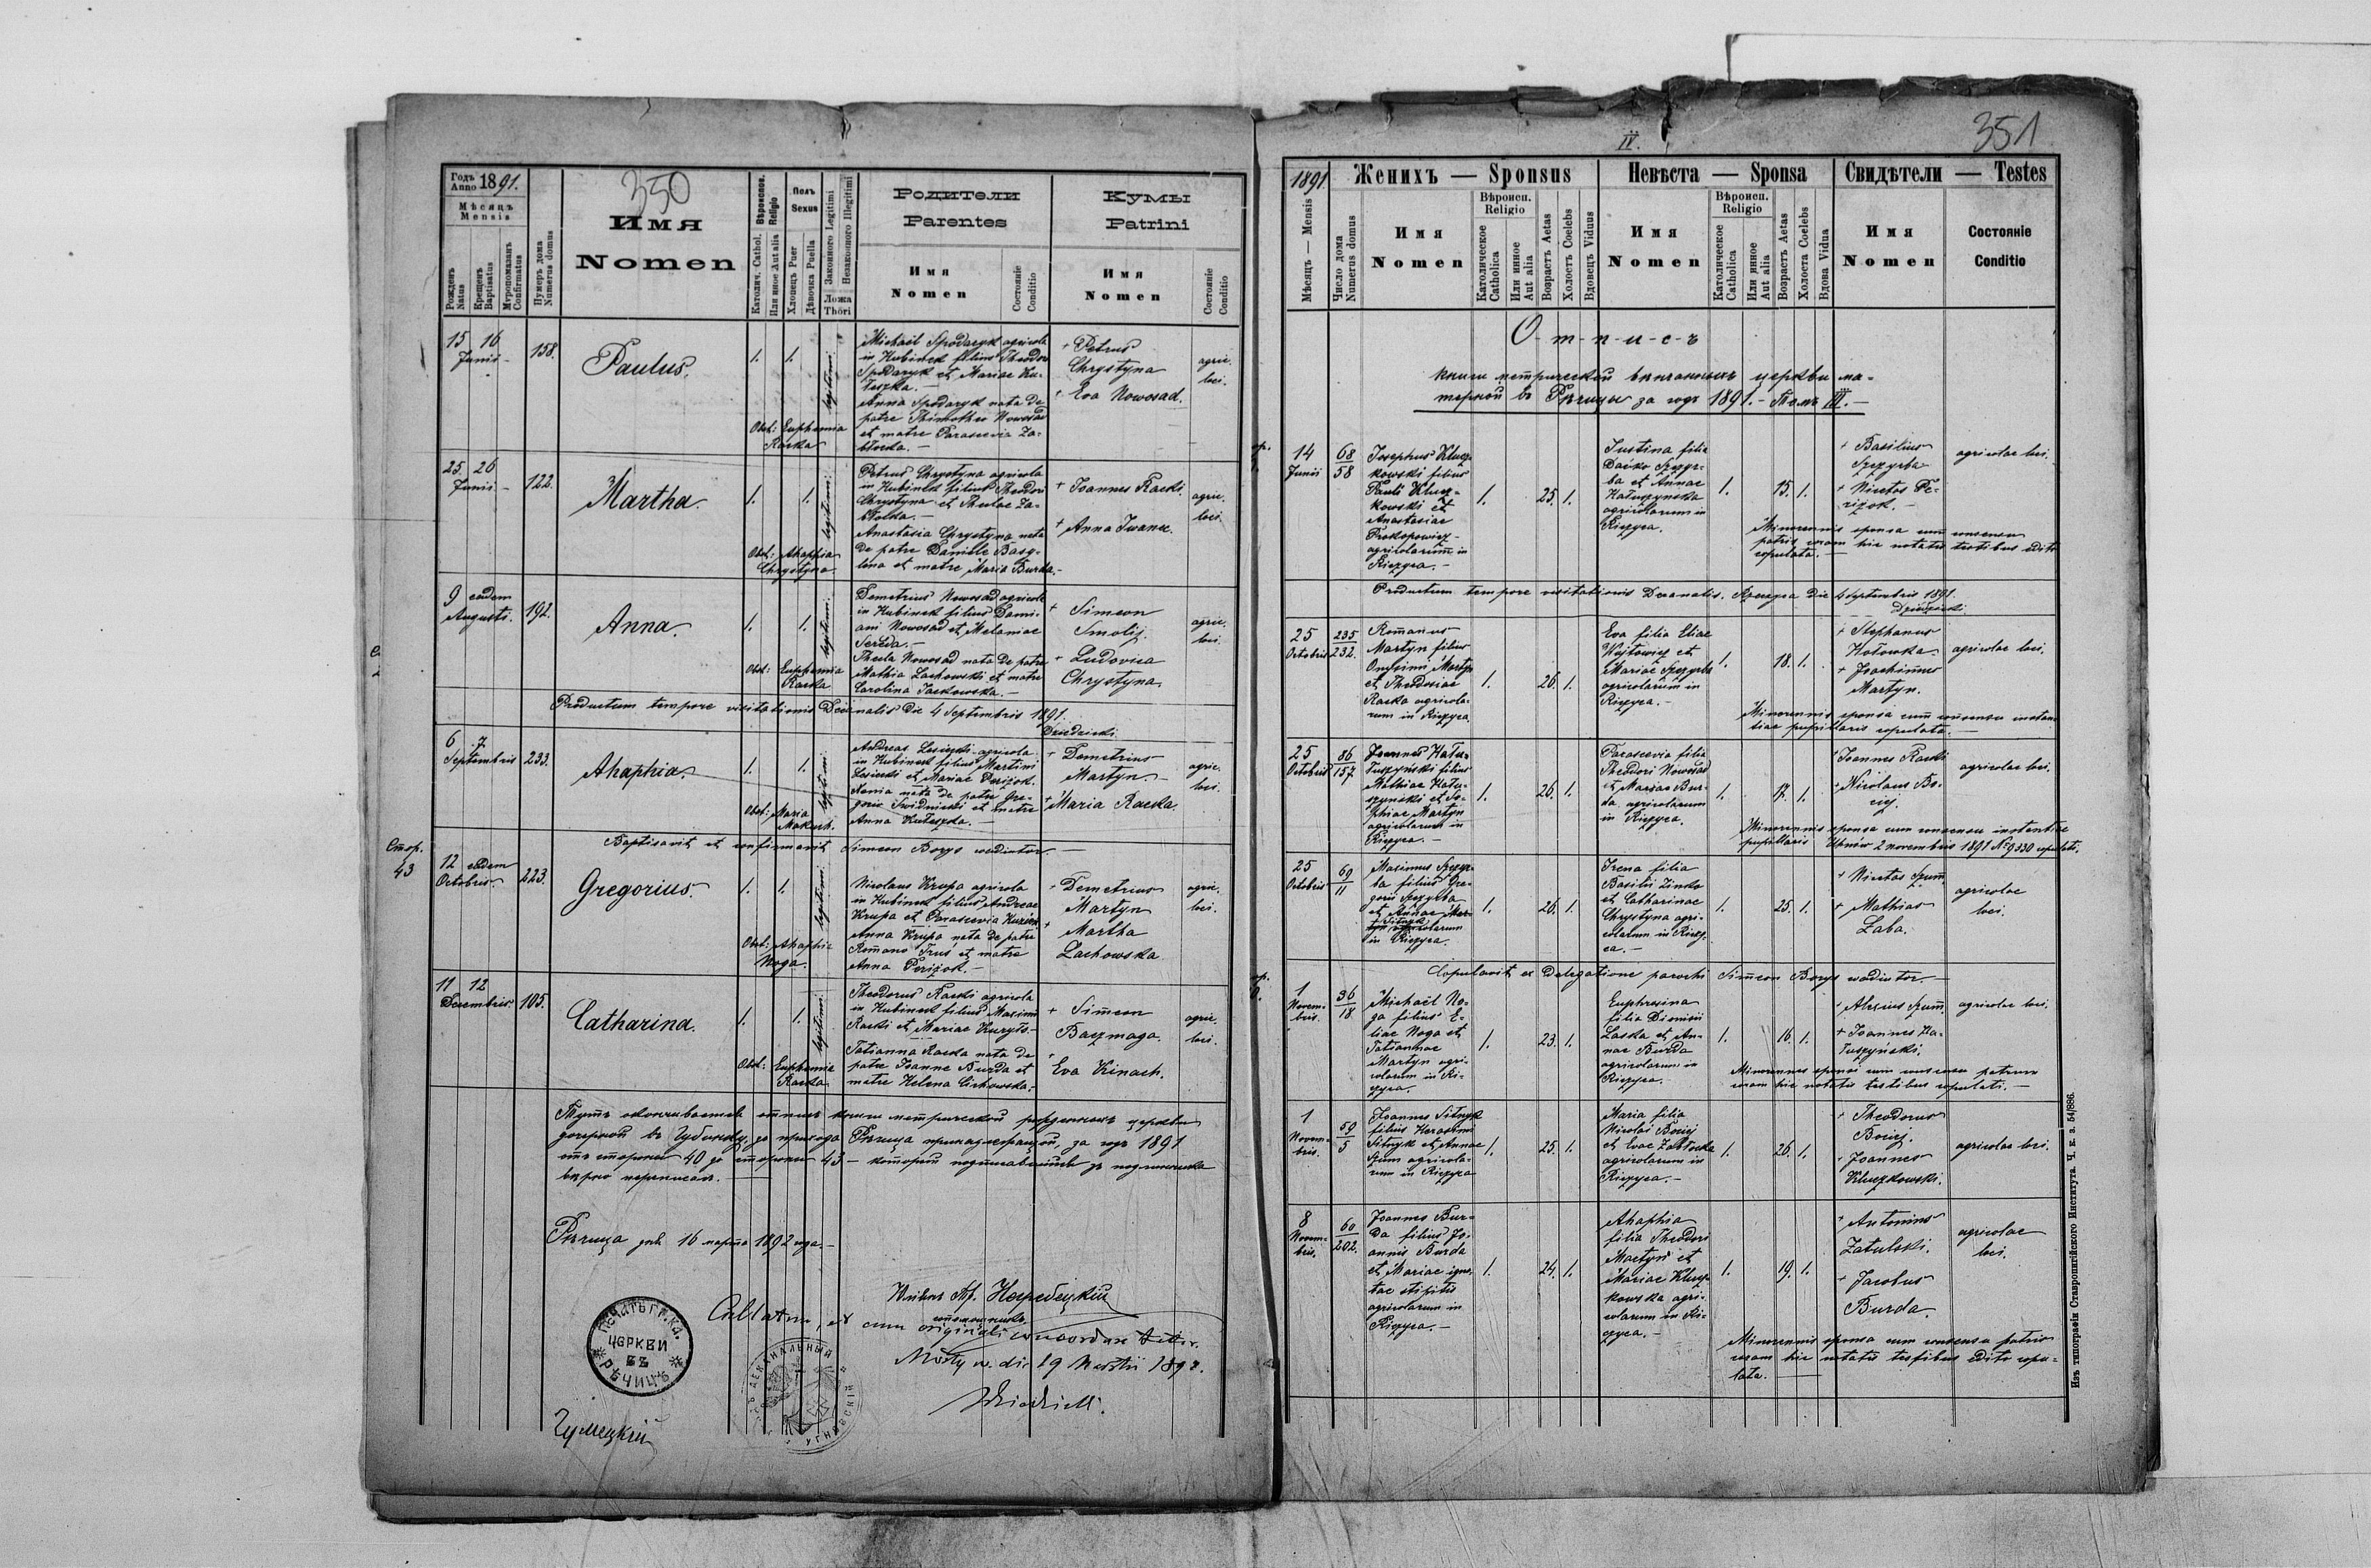 350
Годъ Anno 1891.
Мѣсяцъ
Mensis
Рожденъ Natus
Крещенъ Baptisatus
Мѵропомазанъ Confirmatus
Нумеръ дома Numerus domus
Имя
Nomen
Вѣроиспов. Religio
Католич. Cathol.
Или иное Aut alia
Полъ
Sexus
Хлопецъ Puer
Дѣвочка Puella
Законного Legitimi
Незаконного Illegitimi
Ложа
Thori
Родители
Parentes
Имя
Nomen
Состояніе
Conditio
Кумы
Patrini
Имя
Nomen
Состояніе
Conditio
15 16
Junii
158.
Paulus.
1. 1.
legitimi
Obst: Euphemia
Racka
Michaël Spodaryk agricola
in Hubinek filius Theodori
Spodaryk et Mariae Ku-
łaszka.
Anna Spodaryk nata de
patre Thimotheo Nowosad
et matre Parascevia Za-
błocka.
+ Petrus
Chrystyna
+ Eva Nowosad.
agric.
loci.
25 26
Junii
122.
Martha.
1. 1.
legitimi
Obst: Ahaphia
Chrystyna.
Petrus Chrystyna agricola
in Hubinek filius Theodori
Chrystyna et Theclae Za-
błocka.
Anastasia Chrystyna nata
de patre Daniele Basy-
lina et matre Maria Burda.
+ Joannes Racki.
+ Anna Iwanec.
agric.
loci.
9 eadem
Augusti.
192.
Anna.
1. 1.
legitimi
Obst: Euphemia
Racka
Demetrius Nowosad agricola
in Hubinek filius Dami-
ani Nowosad et Melaniae
Sereda.
Thecla Nowosad nata de patre
Mathia Lachowski et matre
Carolina Jackowska.
+ Simeon
Smolij.
+ Ludovica
Chrystyna
agric.
loci.
Productum tempore visitationis Decanalis die 4 Septembris 1891.
Dziedzicki
6 7
Septembris
233.
Ahaphia.
1. 1.
legitimi
Obst: Maria
Makuch.
Andreas Lesicki agricola
in Hubinek filius Martini
Lesicki et Mariae Perižok.
Xenia nata de patre Gre-
gorio Swidnicki et matre
Anna Kułaszka.
+ Demetrius
Martyn
+ Maria Racka.
agric.
loci.
Baptisavit et confirmavit Simeon Borys coadiutor.
Стор.
43
12 eadem
Octobris.
223.
Gregorius.
1. 1.
legitimi
Obst: Ahaphia
Noga.
Nicolaus Krupa agricola
in Hubinek filius Andreae
Krupa et Parascevia
Anna Krupa nata de patre
Romano Truś et matre
Anna Perižok.
+ Demetrius
Martyn
+ Martha
Lachowska.
agric.
loci.
11 12
Decembris.
105.
Catharina.
1. 1.
legitimi
Obst: Euphemia
Racka
Theodorus Racki agricola
in Hubinek filius Maximi
Racki et Mariae Kuryło.
Tatianna Racka nata de
patre Joanne Burda et
matre Helena Cichowska.
+ Simeon
Baczmaga.
+ Eva Kinach.
agric.
loci.
Тутъ оканчивается отпись книги метрической рожденныхъ церкви
дочерной въ Губинку, до прихода Рѣчица принадлежащой, за годъ 1891
отъ стороны 40 до стороны 43 – который подписавшійся зъ подлинника
вѣрно переписалъ.
Рѣчица дня 16 марта 1892 года.
Collatum, et cum originali concordare
Mosty m. die 19 Martii 1892.
Dziedzicki.
ПЕЧАТЬ ГР. КА.
ЦЕРКВИ
ВЪ
РѢЧИЦѢ
ДЕКАНАЛЬНЫЙ УГНОВСКІЙ
351
IV.
1891.
Мѣсяцъ — Mensis
Число дома
Numerus domus
Женихъ — Sponsus
Имя
Nomen
Вѣроисп.
Religio
Католическое
Catholica
Или инное
Aut alia
Возрастъ Aetas
Холостъ Coelebs
Вдовецъ Viduus
Невѣста — Sponsa
Имя
Nomen
Вѣроисп.
Religio
Католическое
Catholica
Или инное
Aut alia
Возрастъ Aetas
Холоста Coelebs
Вдова Vidua
Свидѣтели — Testes
Имя
Nomen
Состояніе
Conditio
О-т-п-и-с-ъ
книги метрической вѣнчанныхъ церкви ма-
терной въ Рѣчицы за годъ 1891. – Томъ III.
14
Junii
68
58
Josephus Klucz-
kowski filius
Pauli Klucz-
kowski et
Anastasiae
Prokopowicz
agricolarum in
Rzeczyca.
1. 25. 1.
Justina filia
Dačko Szczyr-
ba et Annae
Hałuszynska
agricolarum in
Rzeczyca.
1. 15. 1.
+ Basilius
Szczyrba
+ Nicetas Pe-
rižok.
agricolae loci.
Minorennis sponsa cum consensu
patris coram hic notatis testibus edito
copulata.
Productum tempore visitationis Decanalis. Rzeczyca die 4 Septembris 1891.
Dziedzicki
25
Octobris
235
232.
Romanus
Martyn filius
Onufrii Martyn
et Theodosiae
Racka agricola-
rum in Rzeczyca
1. 26. 1.
Eva filia Eliae
Wojtowicz et
Mariae Szczyrba
agricolarum in
Rzeczyca.
1. 18. 1.
+ Stephanus
Hołowka.
+ Joachimus
Martyn.
agricolae loci.
Minorennis sponsa cum consensu instan-
tiae pupillaris copulata.
25
Octobris
86
157.
Joannes Hału-
szyński filius
Mathiae Hału-
szynski et So-
phiae Martyn
agricolarum in
Rzeczyca.
1. 26. 1.
Parascevia filia
Theodori Nowosad
et Mariae Bur-
da agricolarum
in Rzeczyca.
1. 17. 1.
+ Joannes Racki
+ Nicolaus Bo-
cij.
agricolae loci.
Minorennis sponsa cum consensu instantiae
pupillaris Uhnow 2 novembris 1891 № 9330 copulata.
25
Octobris
69
11
Maximus Szczyr-
ba filius Gre-
gorii Szczyrba
et Annae
Sitnyk
in Rzeczyca.
1. 26. 1.
Irena filia
Basilii Zinko
et Catharinae
Chrystyna agri-
colarum in Rzeczy-
ca.
1. 25. 1.
+ Nicetas Szum
+ Mathias
Łaba.
agricolae
loci.
Copulavit ex delegatione parochi Simeon Borys coadiutor.
1
Novem-
bris.
36
18
Michaël No-
ga filius E-
liae Noga et
Tatiannae
Martyn agri-
colarum in Rze-
czyca.
1. 23. 1.
Euphrosina
filia Dionisii
Laska et An-
nae Burda
agricolarum in
Rzeczyca.
1. 16. 1.
+ Alexius Szum
+ Joannes Ha-
łuszyński.
agricolae loci.
Minorennes sponsi cum consensu patrum
coram hic notatis testibus copulati.
1
Novem-
bris.
59
5
Joannes Sitnyk
filius Herasimi
Sitnyk et Annae
Szum agricola-
rum in Rzeczyca
1. 25. 1.
Maria filia
Nicolai Bocij
et Evae Zabłocka
agricolarum in
Rzeczyca.
1. 26. 1.
+ Theodorus
Bocij.
+ Joannes
Kluczkowski.
agricolae loci.
8
Novem-
bris.
60
202.
Joannes Bur-
da filius Jo-
annis Burda
et Mariae igno-
tae stipitis
agricolarum in
Rzeczyca.
1. 24. 1.
Ahaphia
filia Theodori
Martyn et
Mariae Klucz-
kowska agri-
colarum in Rze-
czyca.
1. 19. 1.
+ Antonius
Zatulski.
+ Jacobus
Burda.
agricolae
loci.
Minorennis sponsa cum consensu patris
coram hic notatis testibus edito copu-
lata.
Изъ типографіи Ставропигійского Института. Ч. к. з. 54/886.